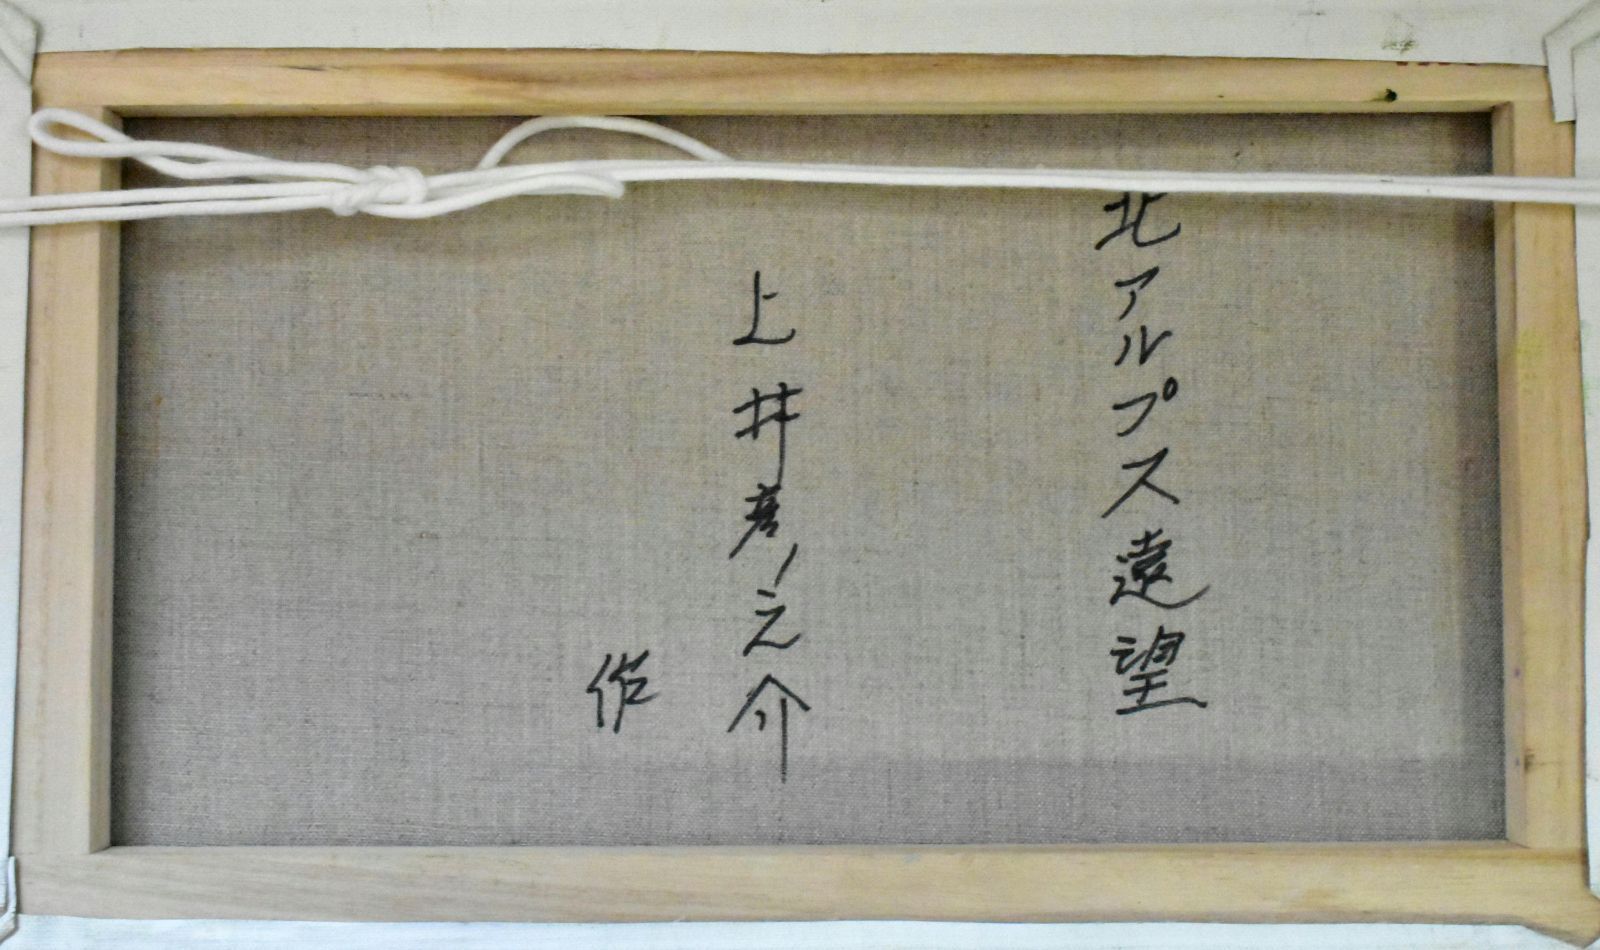 北アルプス遠望
上井彦ノ之介
作